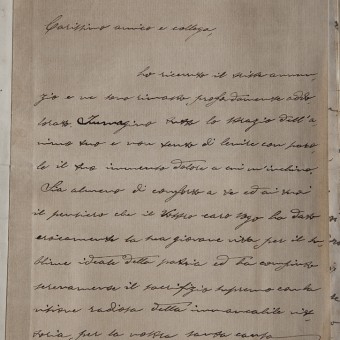 Carissimo amico e collega,
ho ricevuto il triste annun-
zio e ne sono rimasto profondamente addo-
lorato. Immagino tutto lo strazio dell'a
nimo tuo e non tento di lenire con paro
le il tuo immenso dolore a cui m'inchino.
Sia almeno di conforto a te ed ai tuoi
il pensiero che il vostro caro Ugo ha dato
eroicamente la sua giovane vita per il su
blime ideale della patria ed ha compiuto
serenamente il sacrifizio supremo con la
visione radiosa della immancabile vit
toria, per la nostra santa causa